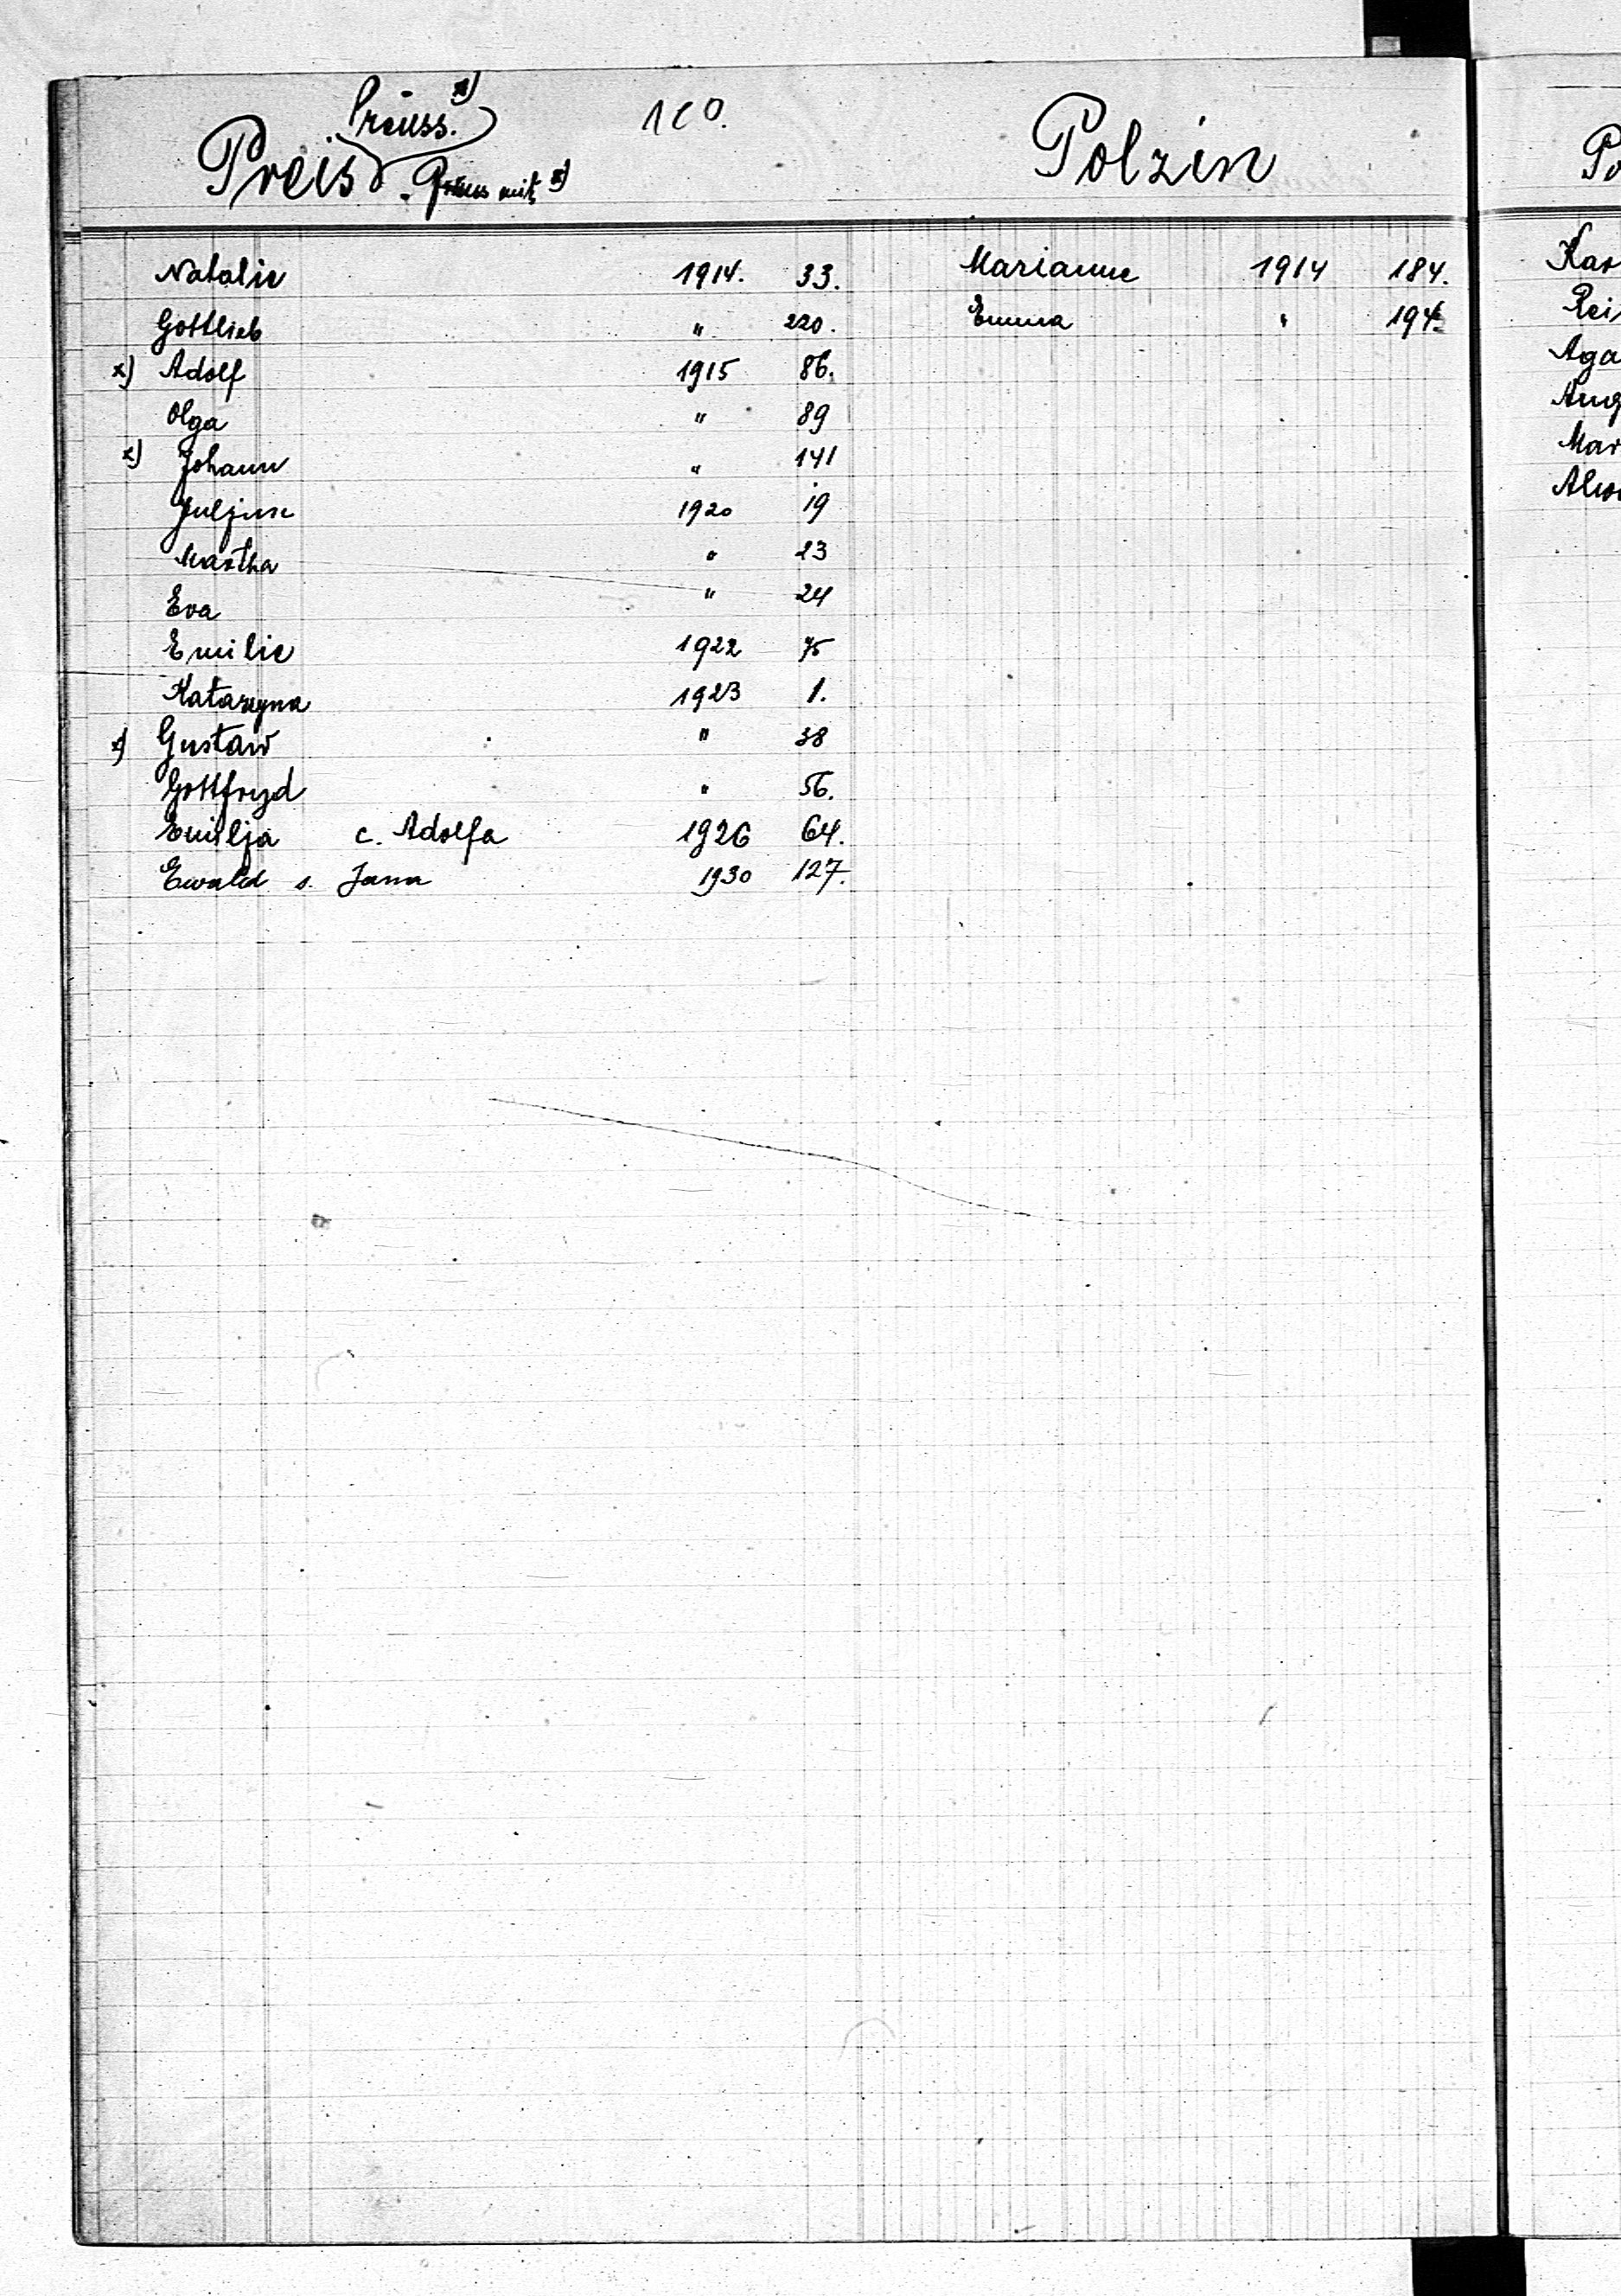 Preuss. x)
100.
Preis . Preuss mit x)
Polzin
Natalie 1914. 33.
Gottlieb " 220.
x) Adolf 1915 86.
Olga " 89
x) Johann " 141
Juljane 1920 19
Martha " 23
Eva " 24
Emilie 1922 75
Katarzyna 1923 1.
x) Gustaw " 38
Gottfryd " 56.
Emilja c. Adolfa 1926 64.
Ewald s. Jana 1930 127.
Marianne 1914 184.
Emma "
Kar
Rei
Aga
Aug
Mar